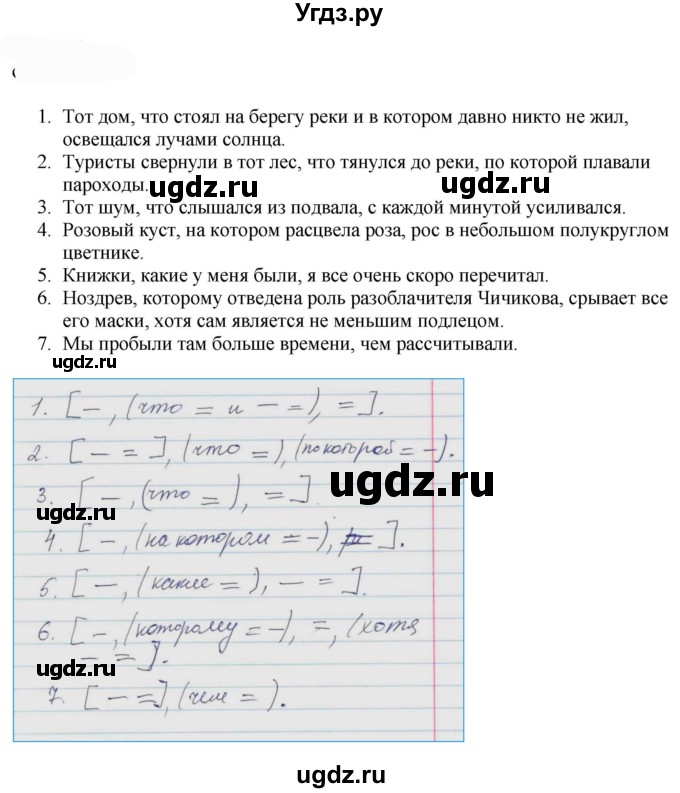 Угдз.ру
1. Тот дом, что стоял на берегу реки и в котором давно никто не жил,
освещался лучами солнца.
2. Туристы свернули в тот лес, что тянулся до реки, по которой плавали
пароходы.
ugdz.ru
ugdz.ru
3. Тот шум, что слышался из подвала, с каждой минутой усиливался.
4. Розовый куст, на котором расцвела роза, рос в небольшом полукруглом
цветнике.
5. Книжки, какие у меня были, я все очень скоро перечитал.
6. Ноздрев, которому отведена роль разоблачителя Чичикова, срывает все
его маски, хотя сам является не меньшим подлецом.
7. Мы пробыли там больше времени, чем рассчитывали.
ugdz.ru
1. [ – , (что = и – =), = ].
2. [ – = ], (что =), (по которой = –).
3. [ – , (что = ), = ]
ugdz.ru
ugdz.ru
4. [ – , (на котором = –), = ].
5. [ – , (какие = ), – = ].
6. [ – , (которому = –), =, (хотя
– = ].
ugdz.ru
7. [ – = ], (чем = ).
ugdz.ru